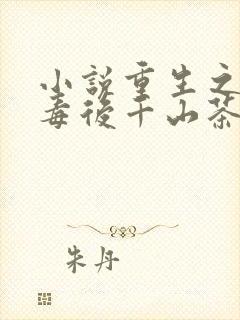 小说重生之
毒后千山茶
朱丹